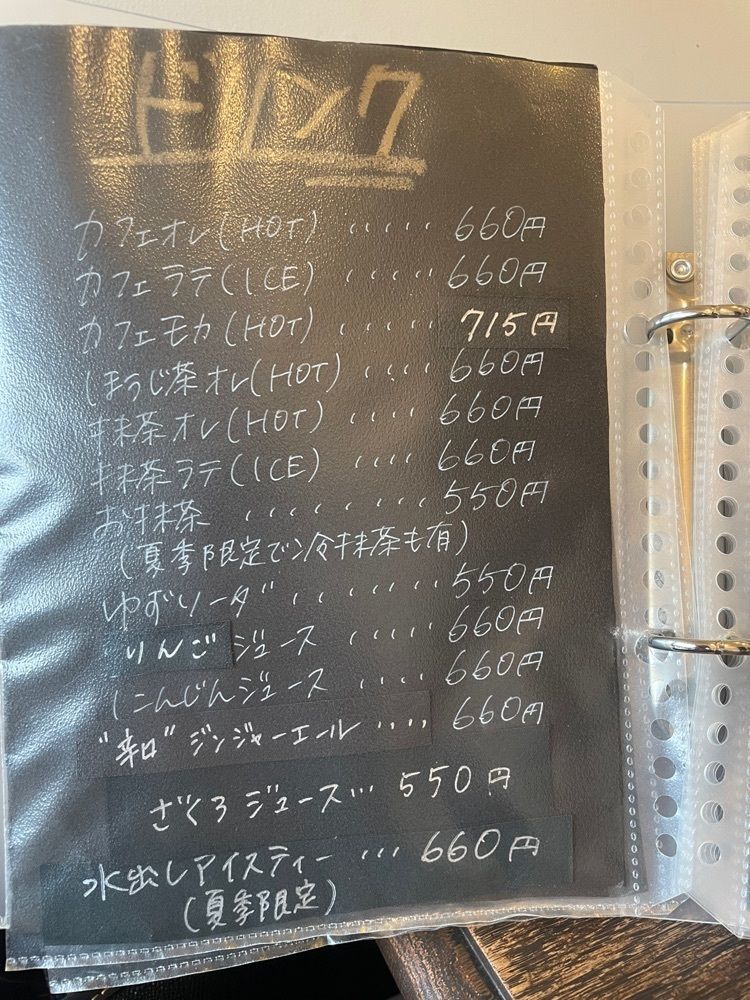 ドリンク
カフェオレ(HOT) ..... 660円
カフェラテ(ICE) ..... 660円
カフェモカ(HOT) ..... 715円
ほうじ茶オレ(HOT) .... 660円
抹茶オレ(HOT) .... 660円
抹茶ラテ(ICE) .... 660円
お抹茶 ....... 550円
(夏季限定で冷抹茶も有)
ゆずソーダ ...... 550円
りんごジュース ..... 660円
にんじんジュース .... 660円
"辛口"ジンジャーエール .... 660円
ざくろジュース... 550円
水出しアイスティー ... 660円
(夏季限定)